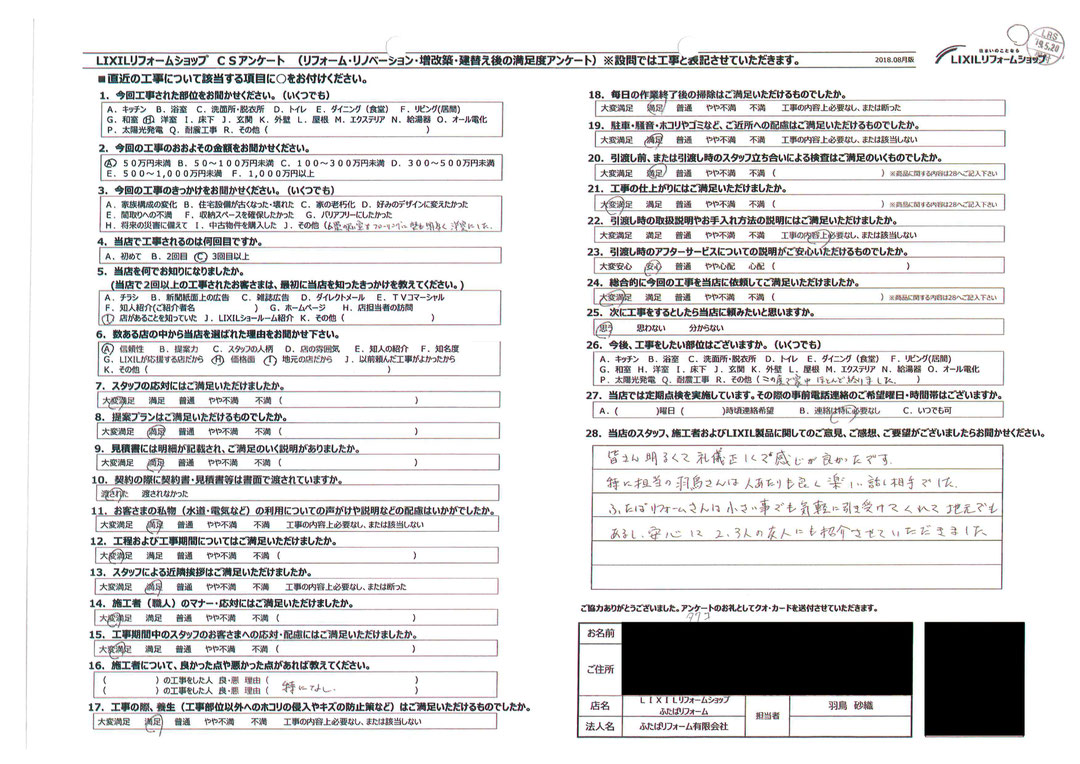 LIXILリフォームショップ CSアンケート （リフォーム・リノベーション・増改築・建替え後の満足度アンケート）※設問では工事と表記させていただきます。
2018.08月版
住まいのことなら
LIXILリフォームショップ
LRS
19.5.20
■直近の工事について該当する項目に○をお付けください。
1．今回工事された部位をお聞かせください。（いくつでも）
A．キッチン B．浴室 C．洗面所・脱衣所 D．トイレ E．ダイニング（食堂） F．リビング(居間)
G．和室 H．洋室 I．床下 J．玄関 K．外壁 L．屋根 M．エクステリア N．給湯器 O．オール電化
P．太陽光発電 Q．耐震工事 R．その他（ ）
2．今回の工事のおおよその金額をお聞かせください。
A．50万円未満 B．50～100万円未満 C．100～300万円未満 D．300～500万円未満
E．500～1,000万円未満 F．1,000万円以上
3．今回の工事のきっかけをお聞かせください。（いくつでも）
A．家族構成の変化 B．住宅設備が古くなった・壊れた C．家の老朽化 D．好みのデザインに変えたかった
E．間取りへの不満 F．収納スペースを確保したかった G．バリアフリーにしたかった
H．将来の災害に備えて I．中古物件を購入した J．その他（
4．当店で工事されるのは何回目ですか。
A．初めて B．2回目 C．3回目以上
5．当店を何でお知りになりましたか。
（当店で２回以上の工事されたお客さまは、最初に当店を知ったきっかけを教えてください。）
A．チラシ B．新聞紙面上の広告 C．雑誌広告 D．ダイレクトメール E．TVコマーシャル
F．知人紹介(ご紹介者名 ) G．ホームページ H．店担当者の訪問
I．店があることを知っていた J．LIXILショールーム紹介 K．その他（ ）
6．数ある店の中から当店を選ばれた理由をお聞かせ下さい。
A．信頼性 B．提案力 C．スタッフの人柄 D．店の雰囲気 E．知人の紹介 F．知名度
G．LIXILが応援する店だから H．価格面 I．地元の店だから J．以前頼んだ工事がよかったから
K．その他（ ）
7．スタッフの応対にはご満足いただけましたか。
大変満足 満足 普通 やや不満 不満 （ ）
8．提案プランはご満足いただけるものでしたか。
大変満足 満足 普通 やや不満 不満 （ ）
9．見積書には明細が記載され、ご満足のいく説明がありましたか。
大変満足 満足 普通 やや不満 不満 （ ）
10．契約の際に契約書・見積書等は書面で渡されていますか。
渡された 渡されなかった
11．お客さまの私物（水道・電気など）の利用についての声がけや説明などの配慮はいかがでしたか。
大変満足 満足 普通 やや不満 不満 工事の内容上必要なし、または該当しない
12．工程および工事期間についてはご満足いただけましたか。
大変満足 満足 普通 やや不満 不満 （ ）
13．スタッフによる近隣挨拶はご満足いただけましたか。
大変満足 満足 普通 やや不満 不満 工事の内容上必要なし、または断った
14．施工者（職人）のマナー・応対にはご満足いただけましたか。
大変満足 満足 普通 やや不満 不満 （ ）
15．工事期間中のスタッフのお客さまへの応対・配慮にはご満足いただけましたか。
大変満足 満足 普通 やや不満 不満 （ ）
16．施工者について、良かった点や悪かった点があれば教えてください。
（ ）の工事をした人 良・悪 理由（ ）
（ ）の工事をした人 良・悪 理由（ 特になし。 ）
17．工事の際、養生（工事部位以外へのホコリの侵入やキズの防止策など）はご満足いただけるものでしたか。
大変満足 満足 普通 やや不満 不満 工事の内容上必要なし、または該当しない
18．毎日の作業終了後の掃除はご満足いただけるものでしたか。
大変満足 満足 普通 やや不満 不満 工事の内容上必要なし、または断った
19．駐車・騒音・ホコリやゴミなど、ご近所への配慮はご満足いただけるものでしたか。
大変満足 満足 普通 やや不満 不満 工事の内容上必要なし、または該当しない
20．引渡し前、または引渡し時のスタッフ立ち合いによる検査はご満足のいくものでしたか。
大変満足 満足 普通 やや不満 不満 （ ）※商品に関する内容は28へご記入下さい
21．工事の仕上がりにはご満足いただけましたか。
大変満足 満足 普通 やや不満 不満 （ ）※商品に関する内容は28へご記入下さい
22．引渡し時の取扱説明やお手入れ方法の説明にはご満足いただけましたか。
大変満足 満足 普通 やや不満 不満 工事の内容上必要なし、または該当しない
23．引渡し時のアフターサービスについての説明がご安心いただけるものでしたか。
大変安心 安心 普通 やや心配 心配 （ ）
24．総合的に今回の工事を当店に依頼してご満足いただけましたか。
大変満足 満足 普通 やや不満 不満 （ ）※商品に関する内容は28へご記入下さい
25．次に工事をするとしたら当店に頼みたいと思いますか。
思う 思わない 分からない
26．今後、工事をしたい部位はございますか。（いくつでも）
A．キッチン B．浴室 C．洗面所・脱衣所 D．トイレ E．ダイニング（食堂） F．リビング(居間)
G．和室 H．洋室 I．床下 J．玄関 K．外壁 L．屋根 M．エクステリア N．給湯器 O．オール電化
P．太陽光発電 Q．耐震工事 R．その他（ この度で家中ほとんど終りました。 ）
27．当店では定期点検を実施しています。その際の事前電話連絡のご希望曜日・時間帯はございますか。
A．（ ）曜日（ ）時頃連絡希望 B．連絡は特に必要なし C．いつでも可
28．当店のスタッフ、施工者およびLIXIL製品に関してのご意見、ご感想、ご要望がございましたらお聞かせください。
皆さん明るくて礼儀正しくて感じが良かったです。
特に担当の羽鳥さんは人あたりも良く楽しい話し相手でした。
ふたばリフォームさんは小さい事でも気軽に引き受けてくれて地元でも
あるし、安心して2、3人の友人にも紹介させていただきました
ご協力ありがとうございました。アンケートのお礼としてクオ・カードを送付させていただきます。
お名前
ご住所
店名 LIXILリフォームショップ
ふたばリフォーム
担当者 羽鳥 砂織
法人名 ふたばリフォーム有限会社